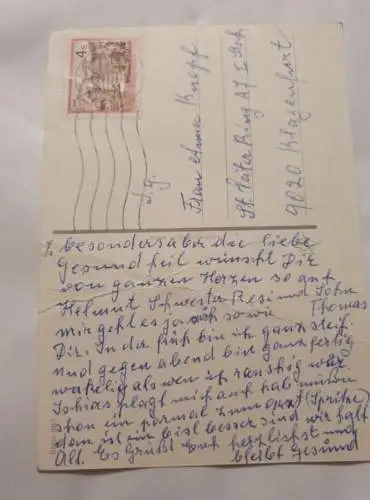 4 S
S. g.
Frau Anna Knapp
St. Peter Ring 27 I. Stock
9020 Klagenfurt
besonders aber die liebe
Gesundheit wünscht Dir
von ganzen Herzen so auf
Helmut Schwester Resi und John
Thomas
mir geht es ja auch so wie
Dir. In der früh bin ich ganz steif
und gegen abend bin ganz fertig
wakelig als wen ich ranshig wär.
Ischias plagt mich auch hab müssen
schon ein par mal zum arzt (Spritze)
dan ist ein bisl besser sind wir halt
Alt. Es Grüßt Euch herzlichst und
bleibt gesund